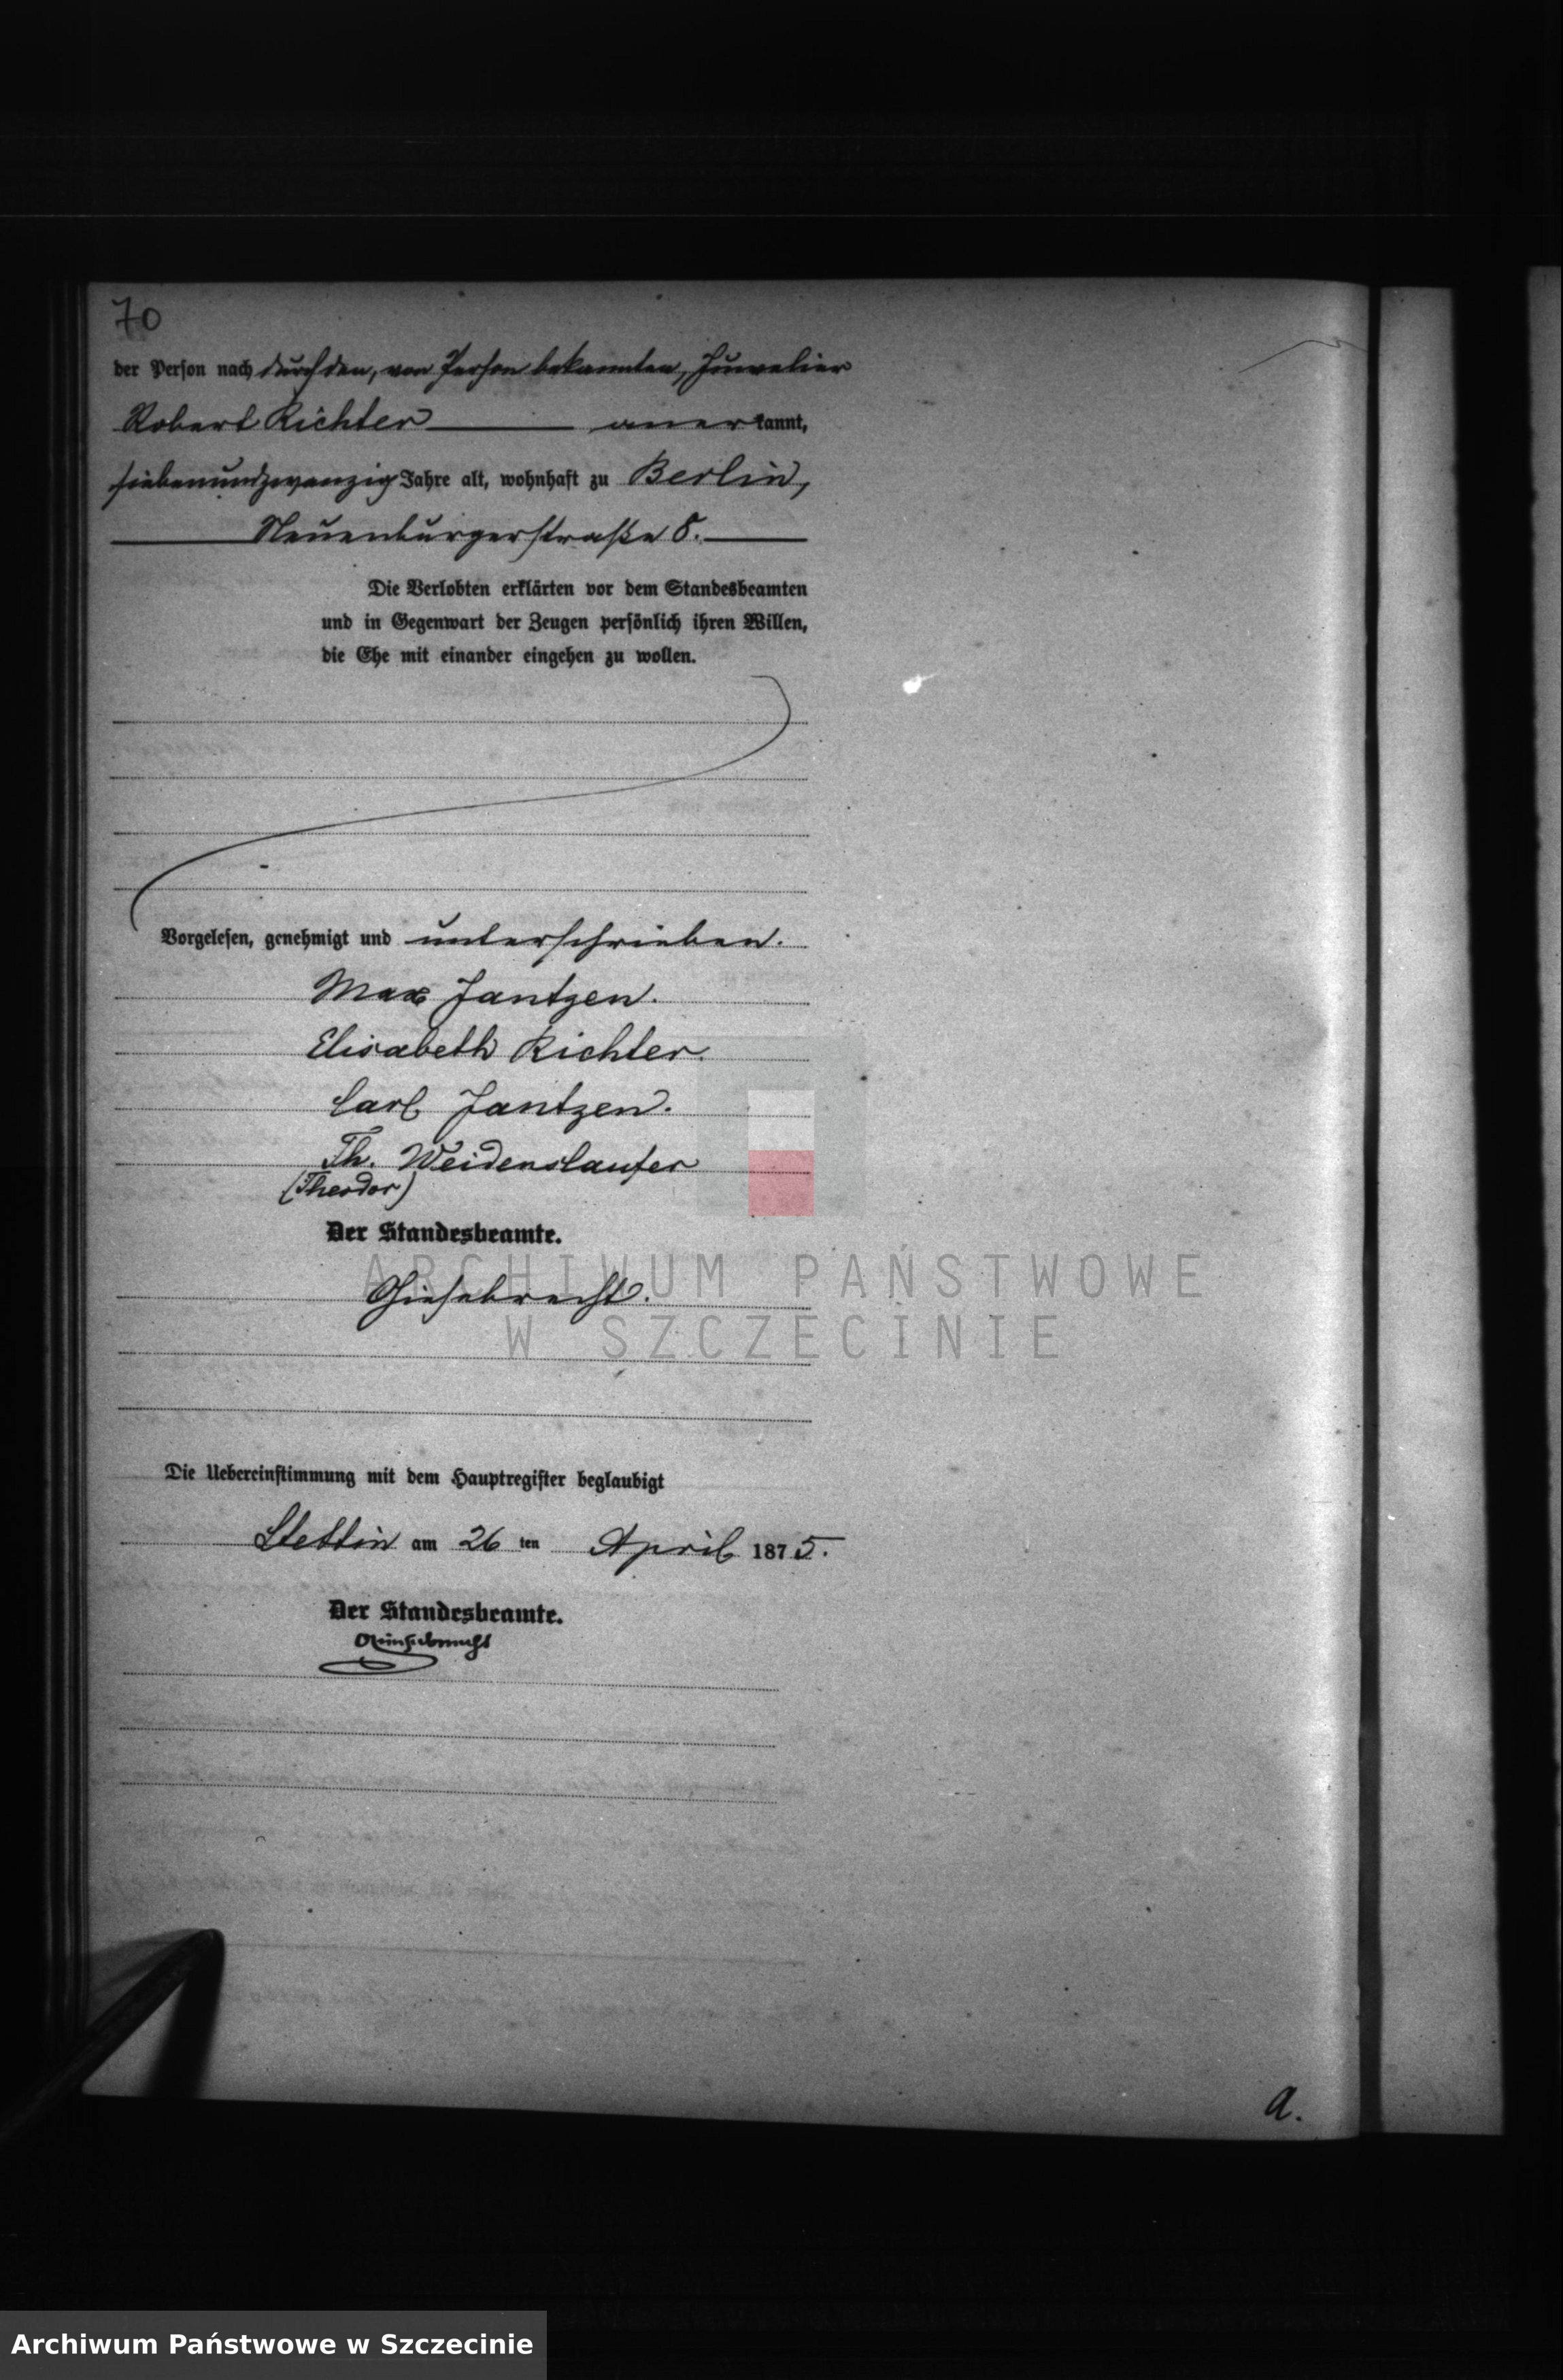 70
der Person nach durch den, von Person bekannten, Juwelier
Robert Richter anerkannt,
siebenundzwanzig Jahre alt, wohnhaft zu Berlin,
Neuenburgerstraße 8.
Die Verlobten erklärten vor dem Standesbeamten
und in Gegenwart der Zeugen persönlich ihren Willen,
die Ehe mit einander eingehen zu wollen.
Vorgelesen, genehmigt und unterschrieben.
Max Jantzen.
Elisabeth Richter.
Carl Jantzen.
Th. Weidenslaufer
(Theodor)
Der Standesbeamte.
Giesebrecht.
ARCHIWUM PAŃSTWOWE
W SZCZECINIE
Die Uebereinstimmung mit dem Hauptregister beglaubigt
Stettin am 26 ten April 1875.
Der Standesbeamte.
Giesebrecht
a.
Archiwum Państwowe w Szczecinie